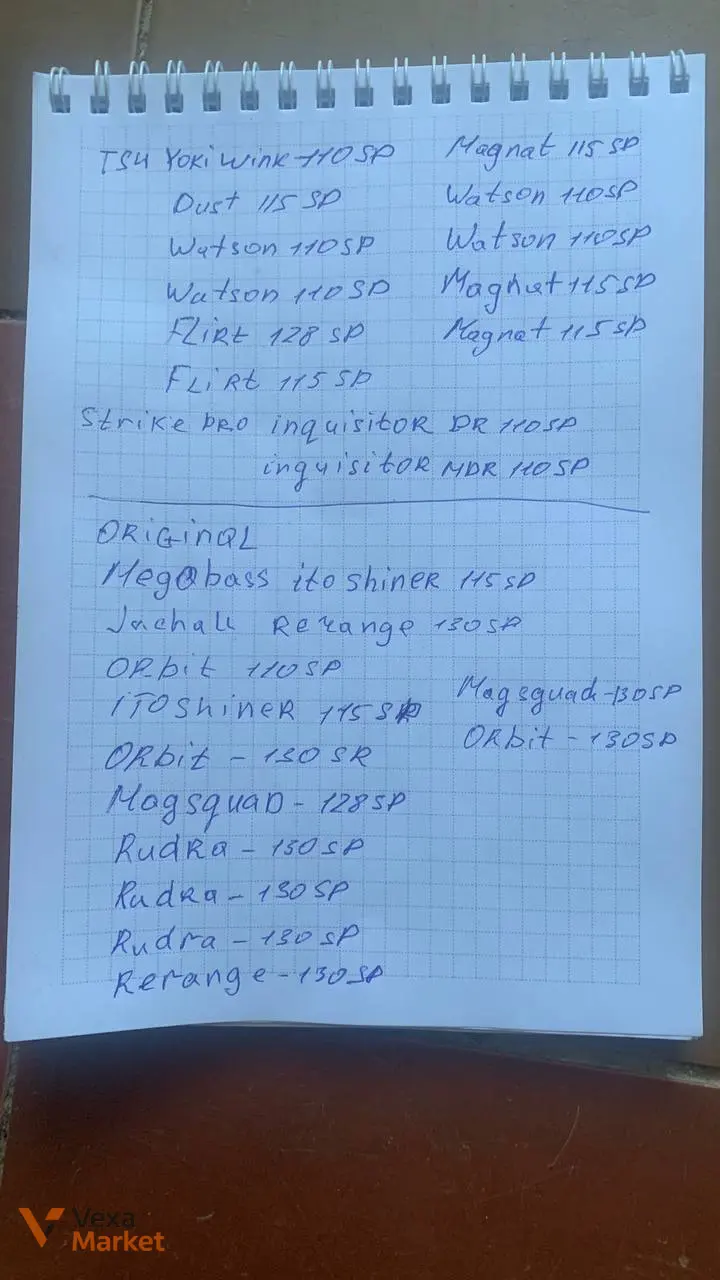 TSU YOKI WINK-110SP
Dust 115 SP
Watson 110SP
Watson 110SP
FLIRt 128 SP
FLIRt 115 SP
Magnat 115 SP
Watson 110SP
Watson 110SP
Magnat 115SP
Magnat 115SP
Strike PRO inquisitOR DR 110SP
inquisitOR MDR 110SP
ORiGinAL
Megabass ito shineR 115 SP
Jachall Rerange 130SP
ORbit 110SP
ITO ShineR 115 SP
ORbit - 130 SR
MagsquaD - 128SP
RudRa - 130 SP
RudRa - 130 SP
Rudra - 130 SP
Rerange - 130SP
Magsquad-130SP
ORbit - 130SP
Vexa
Market